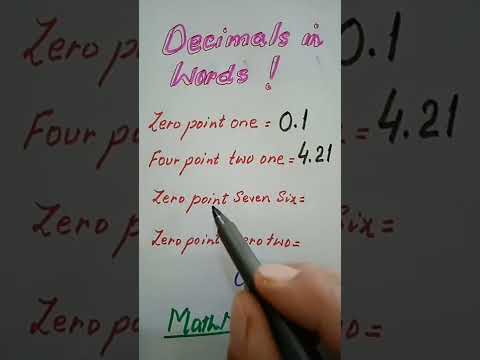 Decimals in
Words!
Zero point one = 0.1
Four point two one = 4.21
Zero point Seven Six =
Zero point two =